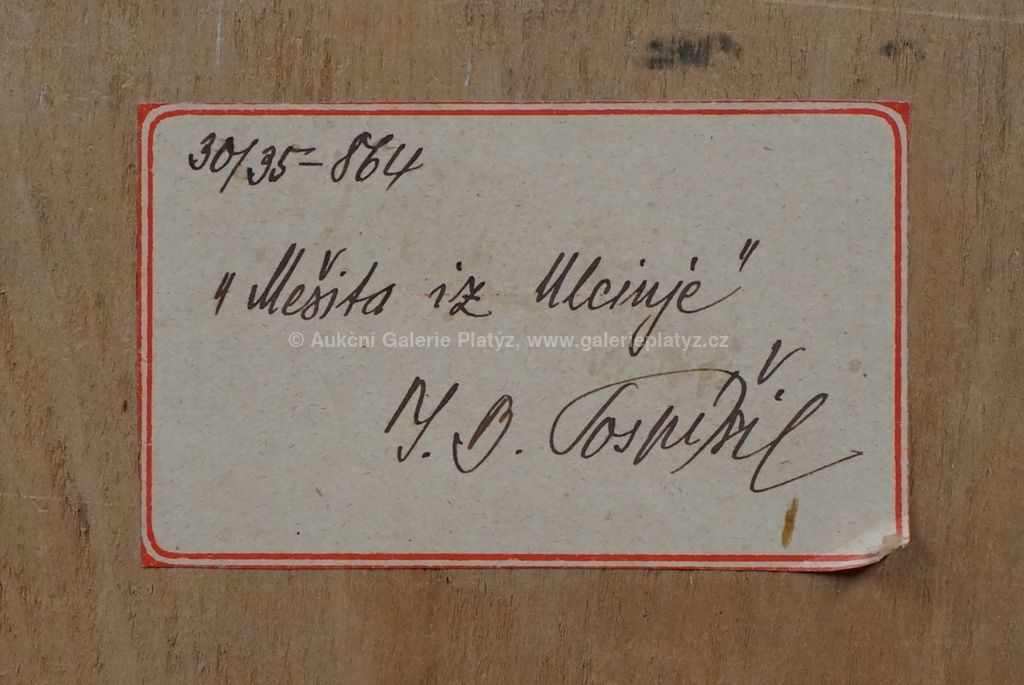 30/35-864
"Mešita iz Ulcinje"
© Aukční Galerie Platýz, www.galerieplatyz.cz
J. B. Pospíšil